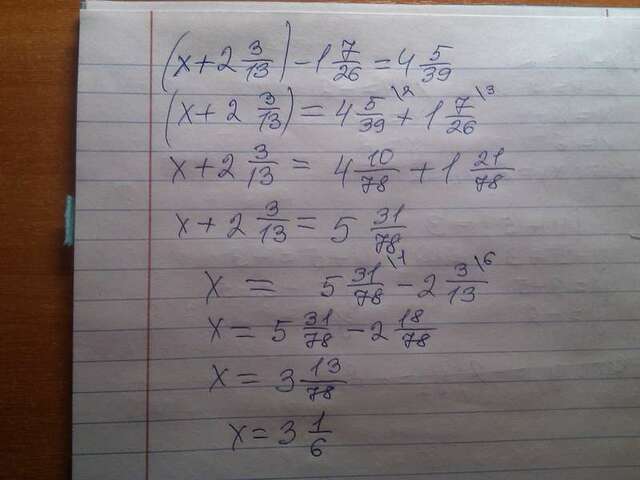 (x + 2 3/13) - 1 7/26 = 4 5/39
(x + 2 3/13) = 4 5/39 \2 + 1 7/26 \3
x + 2 3/13 = 4 10/78 + 1 21/78
x + 2 3/13 = 5 31/78
x = 5 31/78 \1 - 2 3/13 \6
x = 5 31/78 - 2 18/78
x = 3 13/78
x = 3 1/6